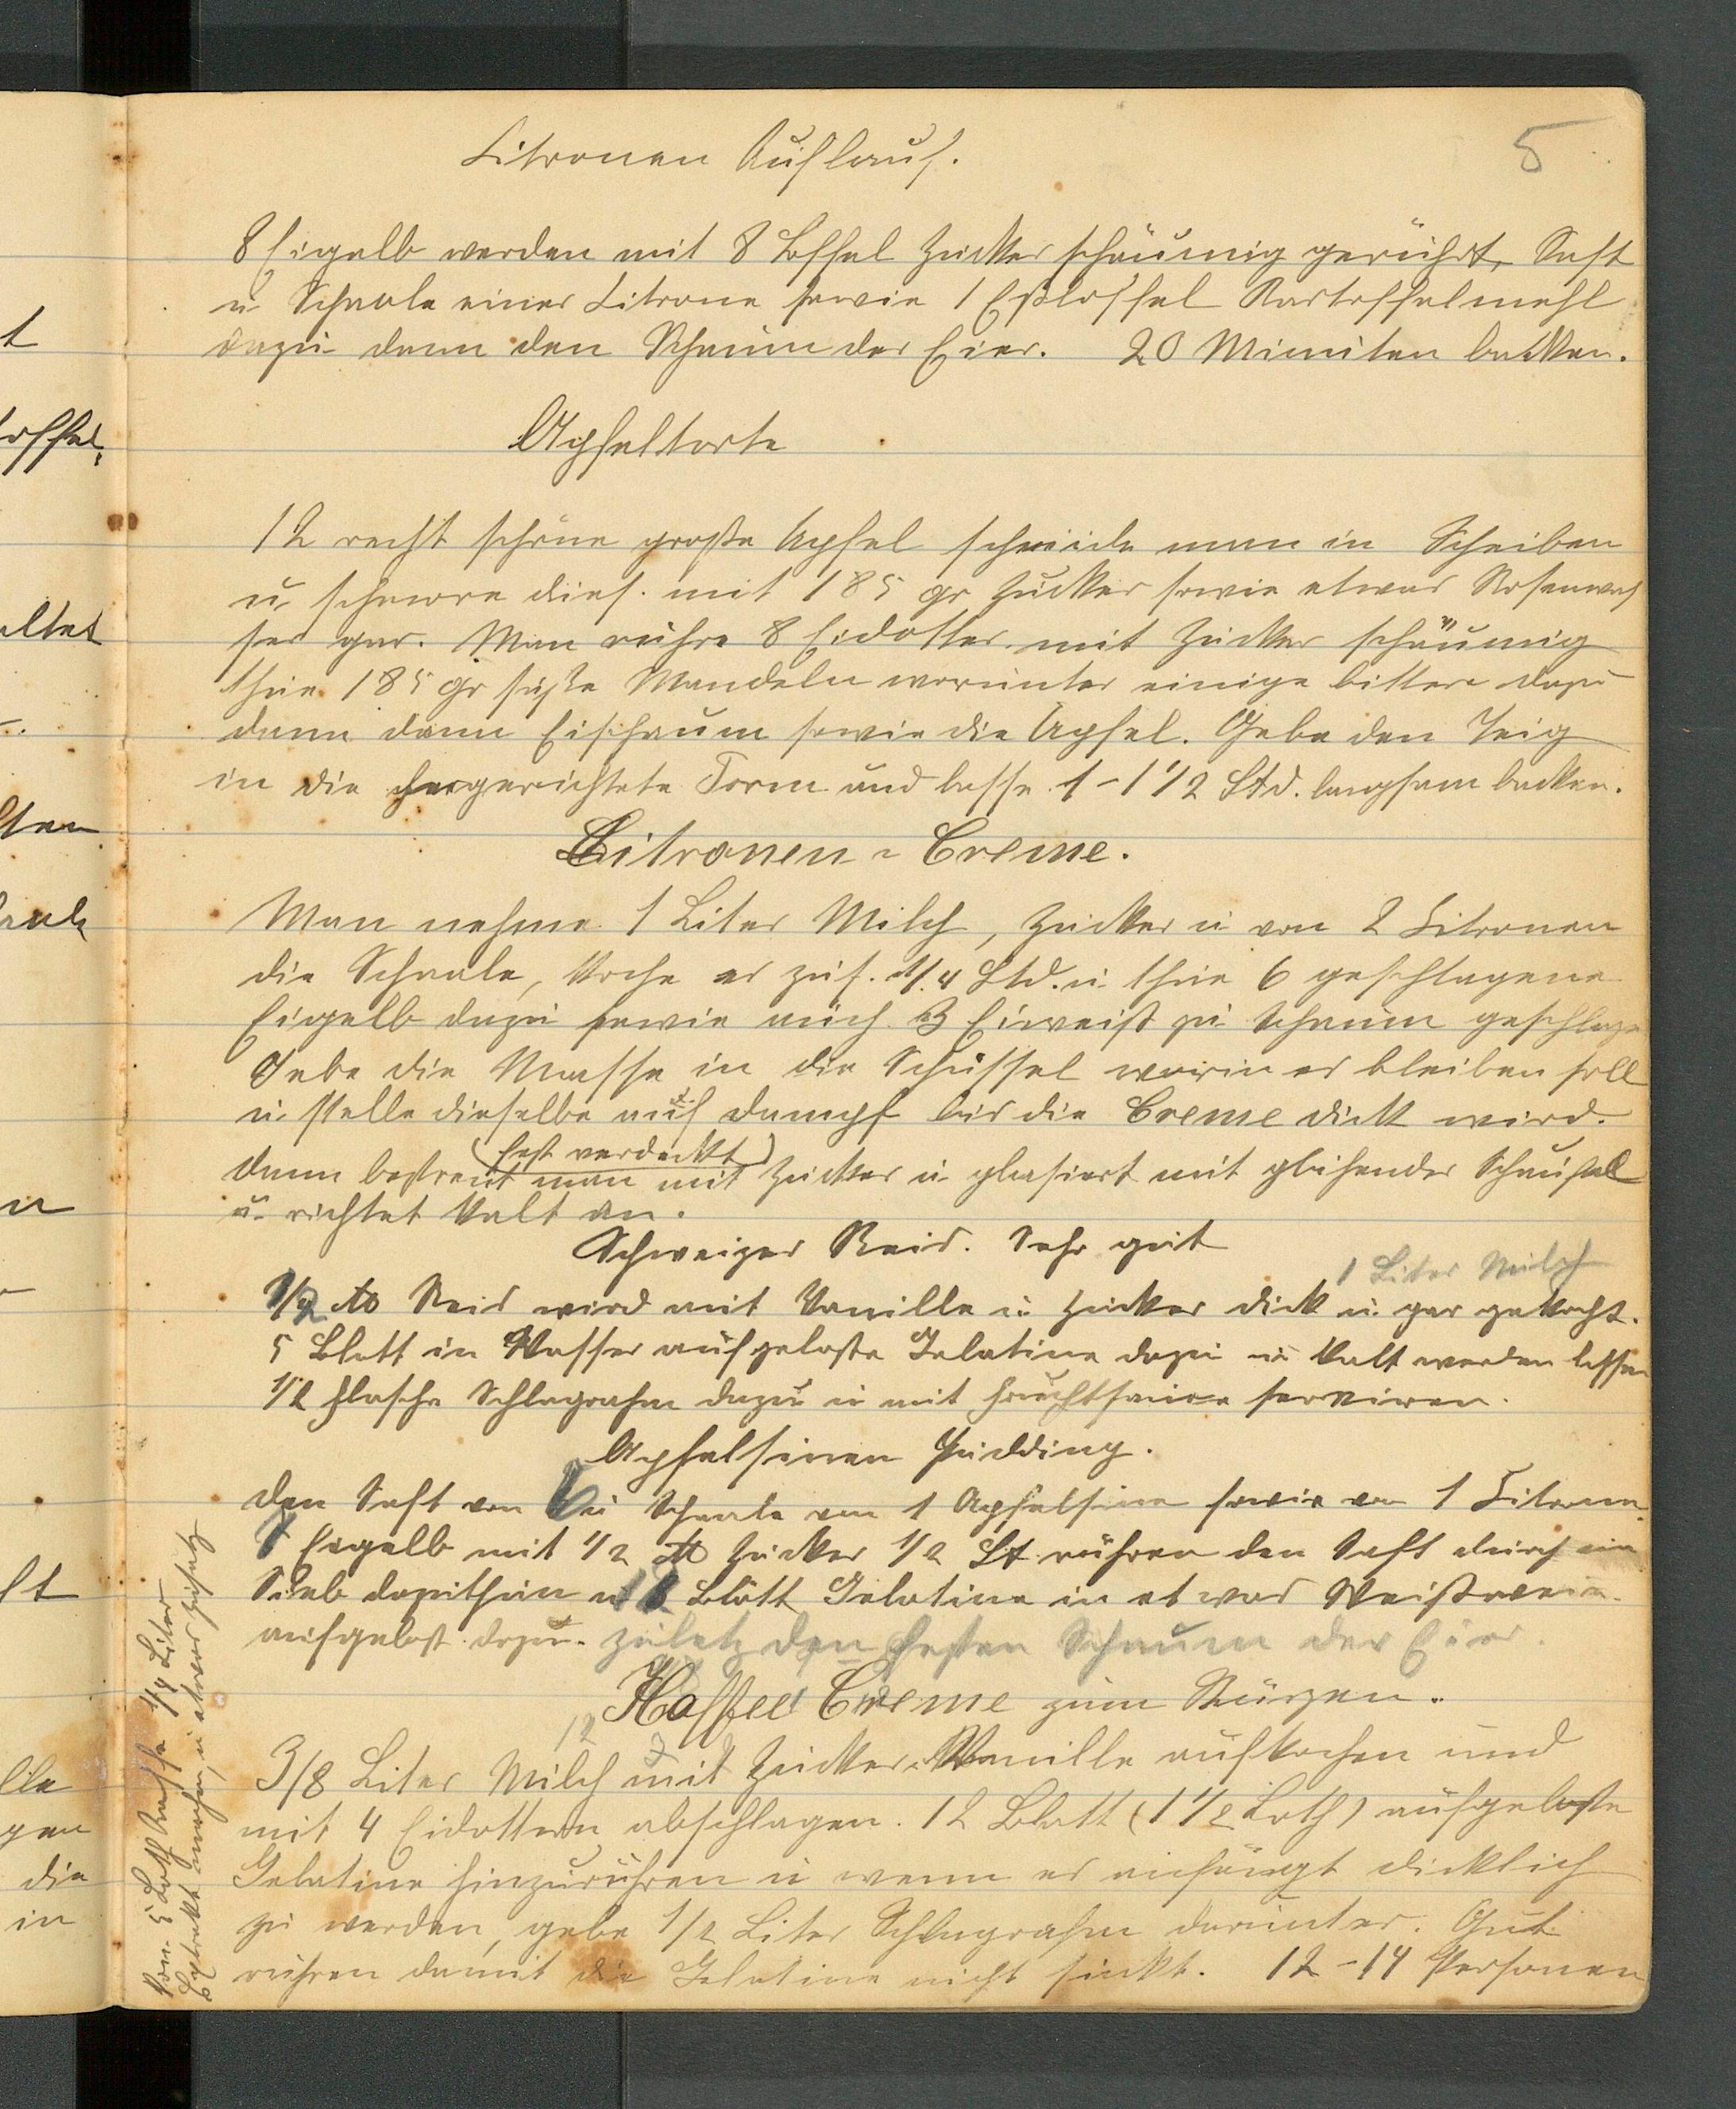 5
Citronen Auflauf.
8 Eigelb werden mit 8 Löffel Zucker schäumig gerührt, Saft
u. Schaale einer Citrone sowie 1 Eßlöffel Kartoffelmehl
dazu dann den Schaum der Eier. 20 Minuten backen.
Apfeltorte
12 recht schöne große Apfel schneide man in Scheiben
u. schmore dies. mit 185 gr Zucker sowie etwas Rosenwas
ser gar. Man rühre 8 Eidotter mit Zucker schäumig
thue 185 gr süße Mandeln worunter einige bittere dazu
dann dann Eischaum sowie die Apfel. Gebe den Teig
in die hergerichtete Form und lasse 1-1 1/2 Std. langsam backen.
Citronen-Creme.
Man nehme 1 Liter Milch, Zucker u von 2 Citronen
die Schaale, koche es zus. 1/4 Std. u. thue 6 geschlagene
Eigelb dazu sowie auch 3 Eiweiß zu Schaum geschlage
Gebe die Masse in die Schüssel worin es bleiben soll
u. stelle dieselbe auf dampf bis die Creme dick wird.
(fest verdeckt)
dann bestreut man mit Zucker u. glasiert mit glühender Schaufel
u. richtet kalt an.
Schweizer Reis. Sehr gut
1 Liter Milch
1/2 ℔ Reis wird mit Vanille u. Zucker dick u. gar gekocht.
5 Blatt in Wasser aufgeloste Gelatine dazu u kalt werden lassen
1/2 Flasche Schlagrahm dazu u mit Fruchtsauce serviren.
Apfelsinen Pudding.
den Saft von 6 u Schaale von 1 Apfelsine sowie von 1 Citrone.
Eigelb mit 1/2 ℔ Zucker 1/2 St rühren den Saft durch ein
Sieb dazuthun u Blatt Gelatine in etwas Weißwein
aufgelost dazu. zuletz den festen Schaum der Eier.
Kaffee Creme zum Stürzen.
12
3/8 Liter Milch mit Zucker u. Vanille aufkochen und
mit 4 Eidottern abschlagen. 12 Blatt (1 1/2 Loth) aufgeloste
Gelatine hinzurühren u wenn es anfängt dicklich
zu werden, gebe 1/2 Liter Schlagrahm darunter. Gut
rühren damit die Gelatine nicht sinkt. 12-14 Personen
Von 5 Loth Kaffe 1/8 Liter
Extrakt machen, u etwas Zusatz